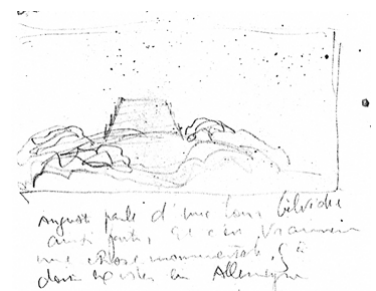 August parle d'une tour belvédère
aussi forte, et c'en vraiment
une chose monumentale. Ça
doit exister en Allemagne